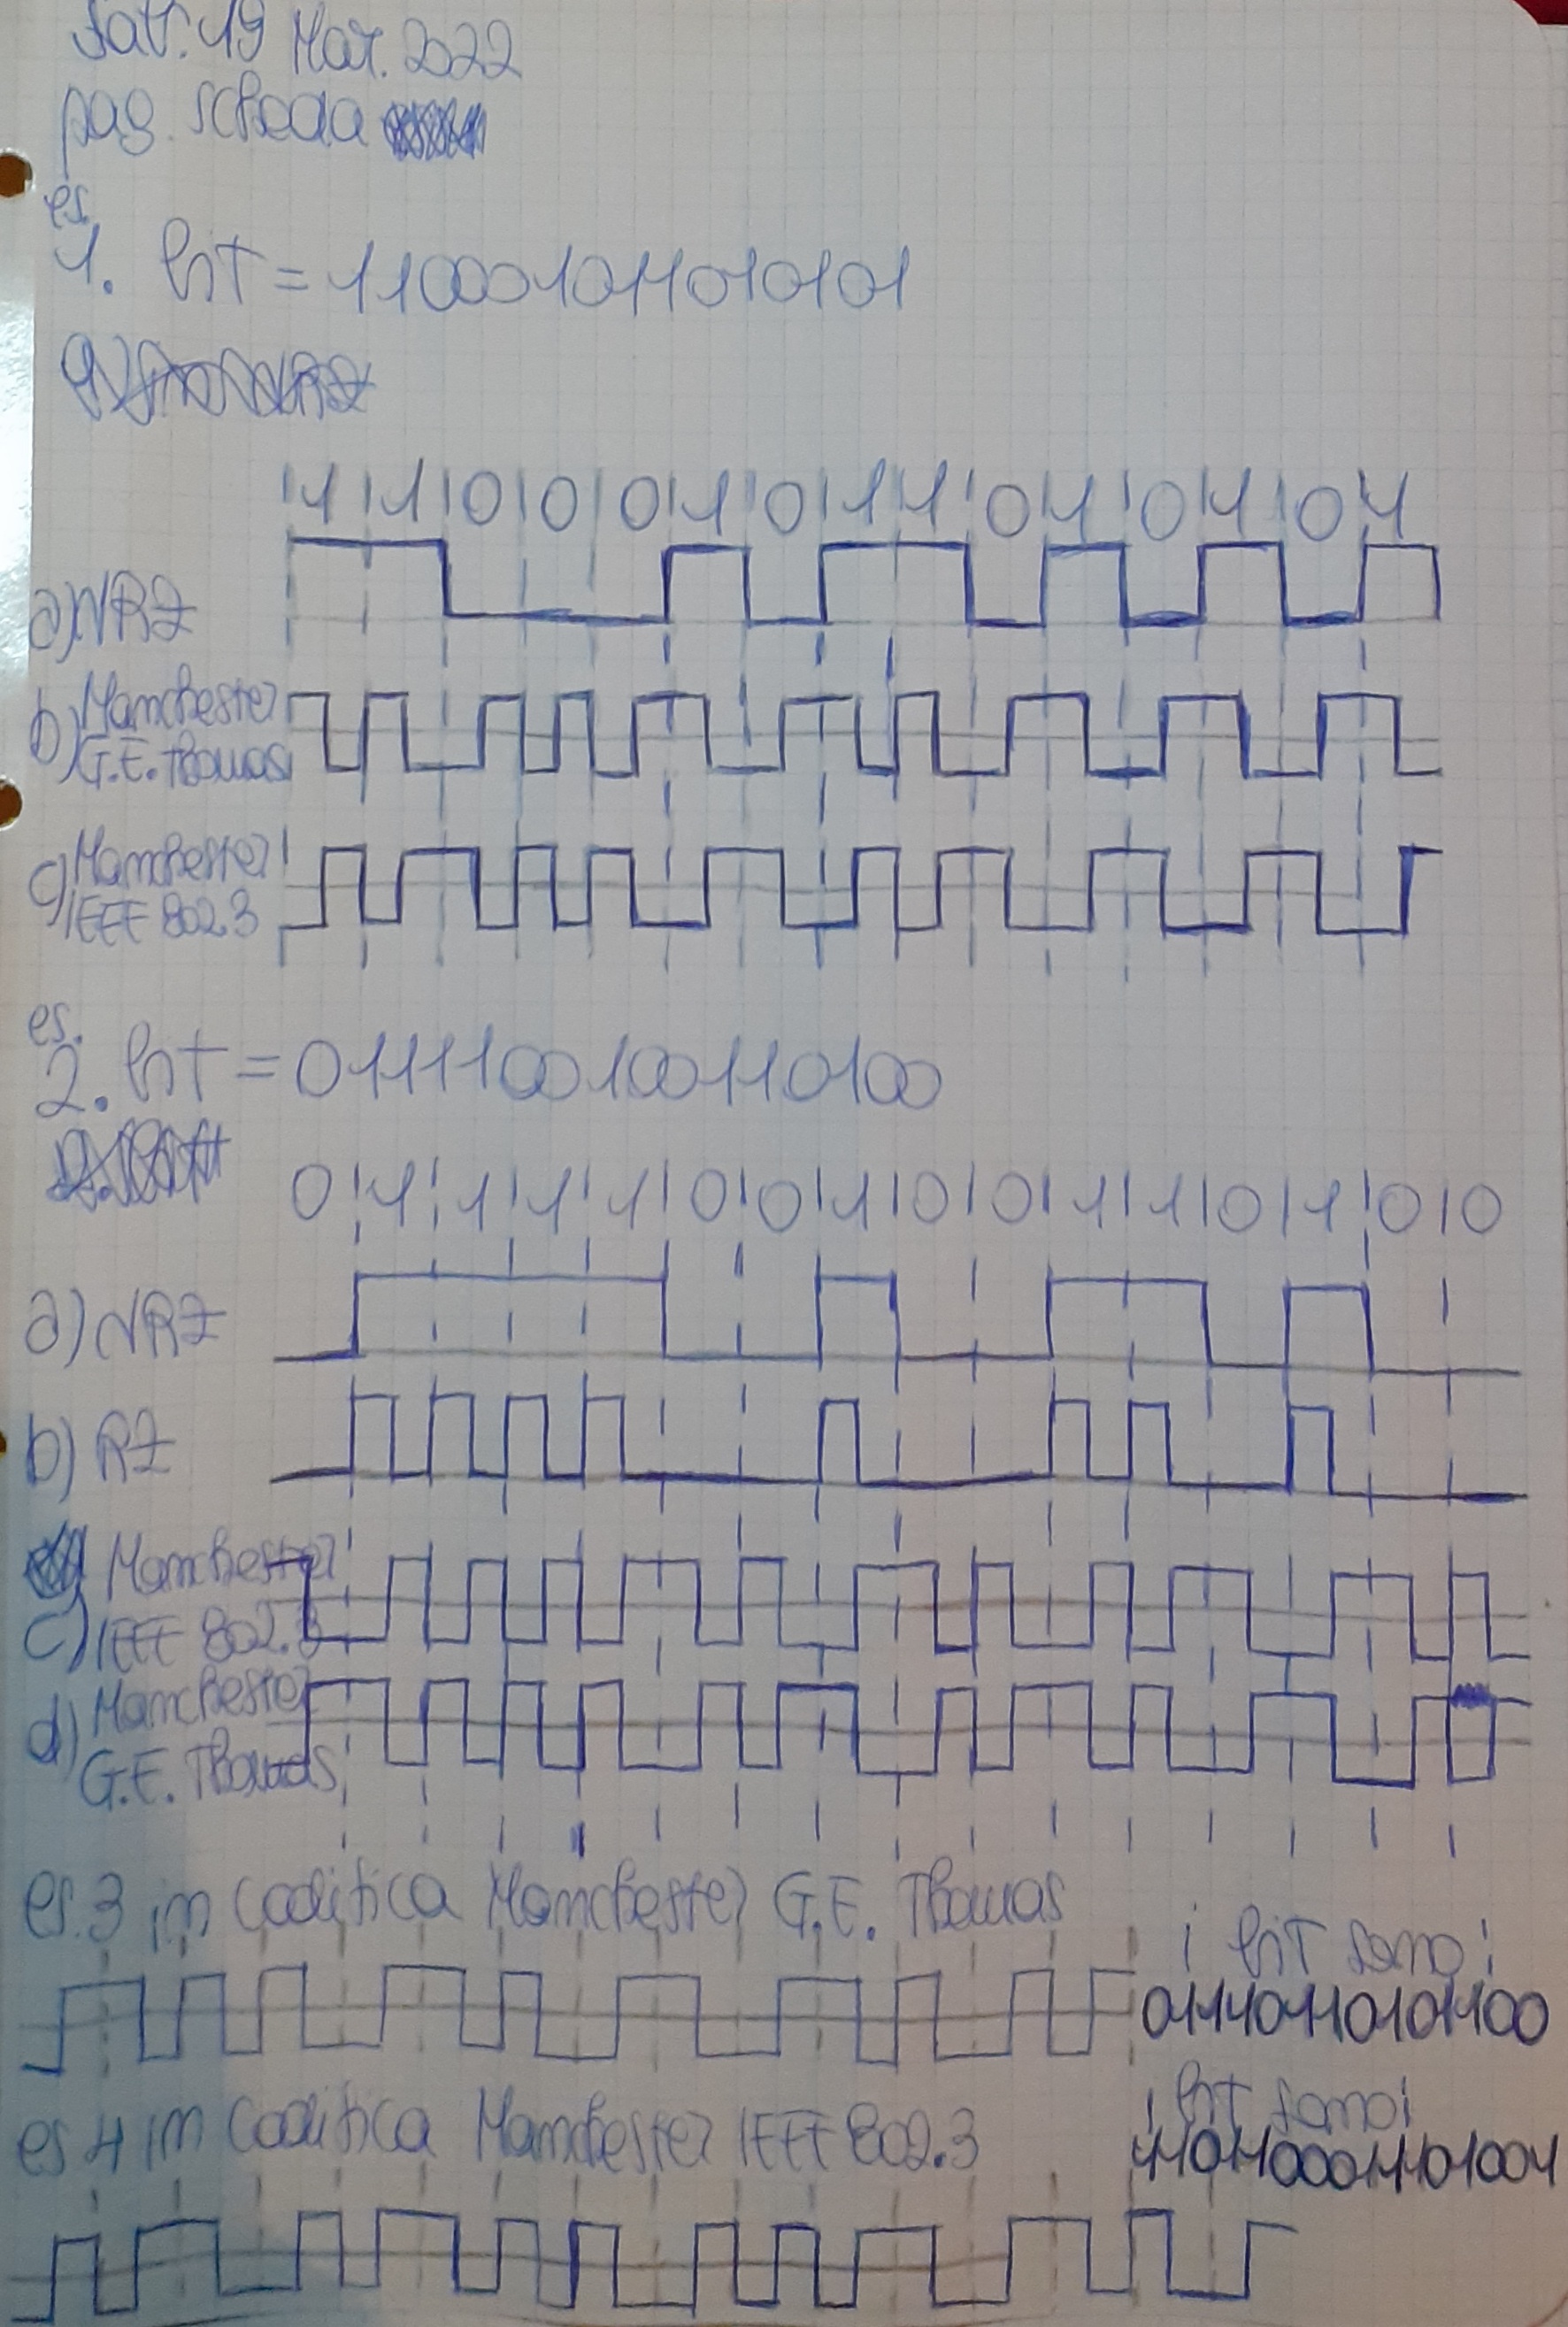 sab. 19 Mar. 2022
pag. scheda
es.
1. bit = 110001011010101
a) NRZ
1 1 0 0 0 1 0 1 1 0 1 0 1 0 1
a) NRZ
b) Manchester
G.E. Thomas
c) Manchester
IEEE 802.3
es.
2. bit = 0111100100110100
0 1 1 1 1 0 0 1 0 0 1 1 0 1 0 0
a) NRZ
b) RZ
Manchester
c) IEEE 802.3
d) Manchester
G.E. Thomas
es.3 in codifica Manchester G.E. Thomas
i bit sono:
01110110101100
es 4 in codifica Manchester IEEE 802.3
i bit sono:
1101100011101001